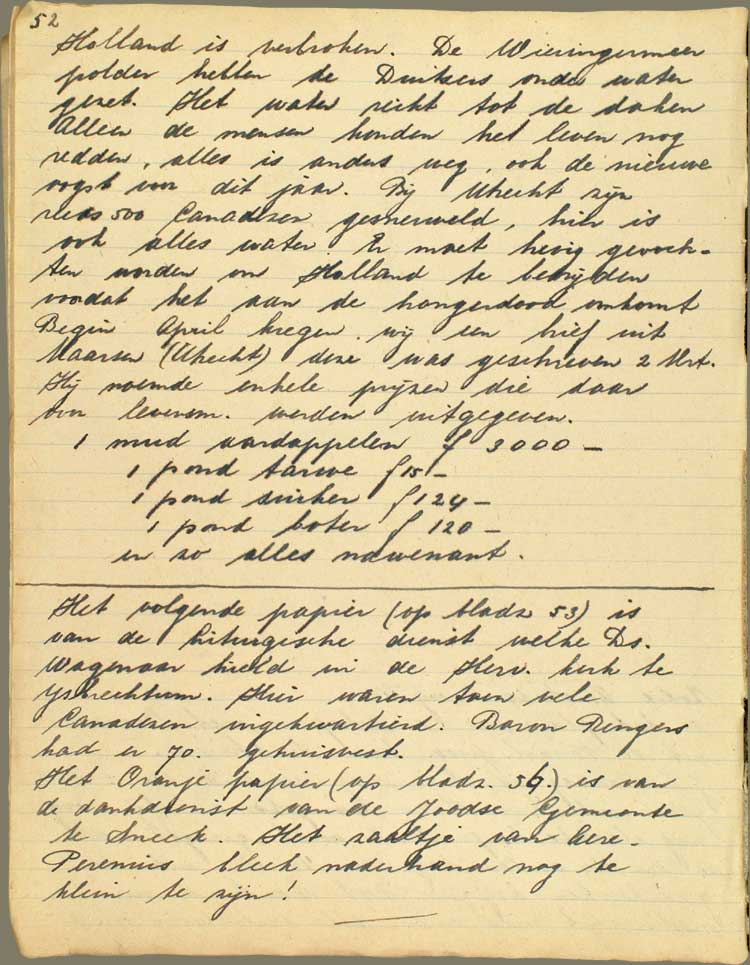 52
Holland is verbroken. De Wieringermeer
polder hebben de Duitsers onder water
gezet. Het water reikt tot de daken
Alleen de mensen konden het leven nog
redden, alles is anders weg, ook de nieuwe
oogst voor dit jaar. Bij Utrecht zijn
reeds 500 Canadezen gesneuveld, hier is
ook alles water. Er moet hevig gevoch-
ten worden om Holland te bevrijden
voordat het aan de hongerdood omkomt
Begin April kregen wij een brief uit
Maarsen (Utrecht) deze was geschreven 2 Mrt.
Hij noemde enkele prijzen die daar
voor levensm. werden uitgegeven.
1 mud aardappelen f 3000 –
1 pond tarwe f 15 –
1 pond suiker f 124 –
1 pond boter f 120 –
en zo alles navenant.
Het volgende papier (op bladz 53) is
van de liturgische dienst welke Ds.
Wagenaar hield in de Herv. kerk te
Ysbrechtum. Hier waren toen vele
Canadezen ingekwartierd. Baron Rengers
had er 70. gehuisvest.
Het Oranje papier (op bladz. 54.) is van
de dankdienst van de Joodse Gemeente
te Sneek. Het zaaltje van
bleek naderhand nog te
klein te zijn!